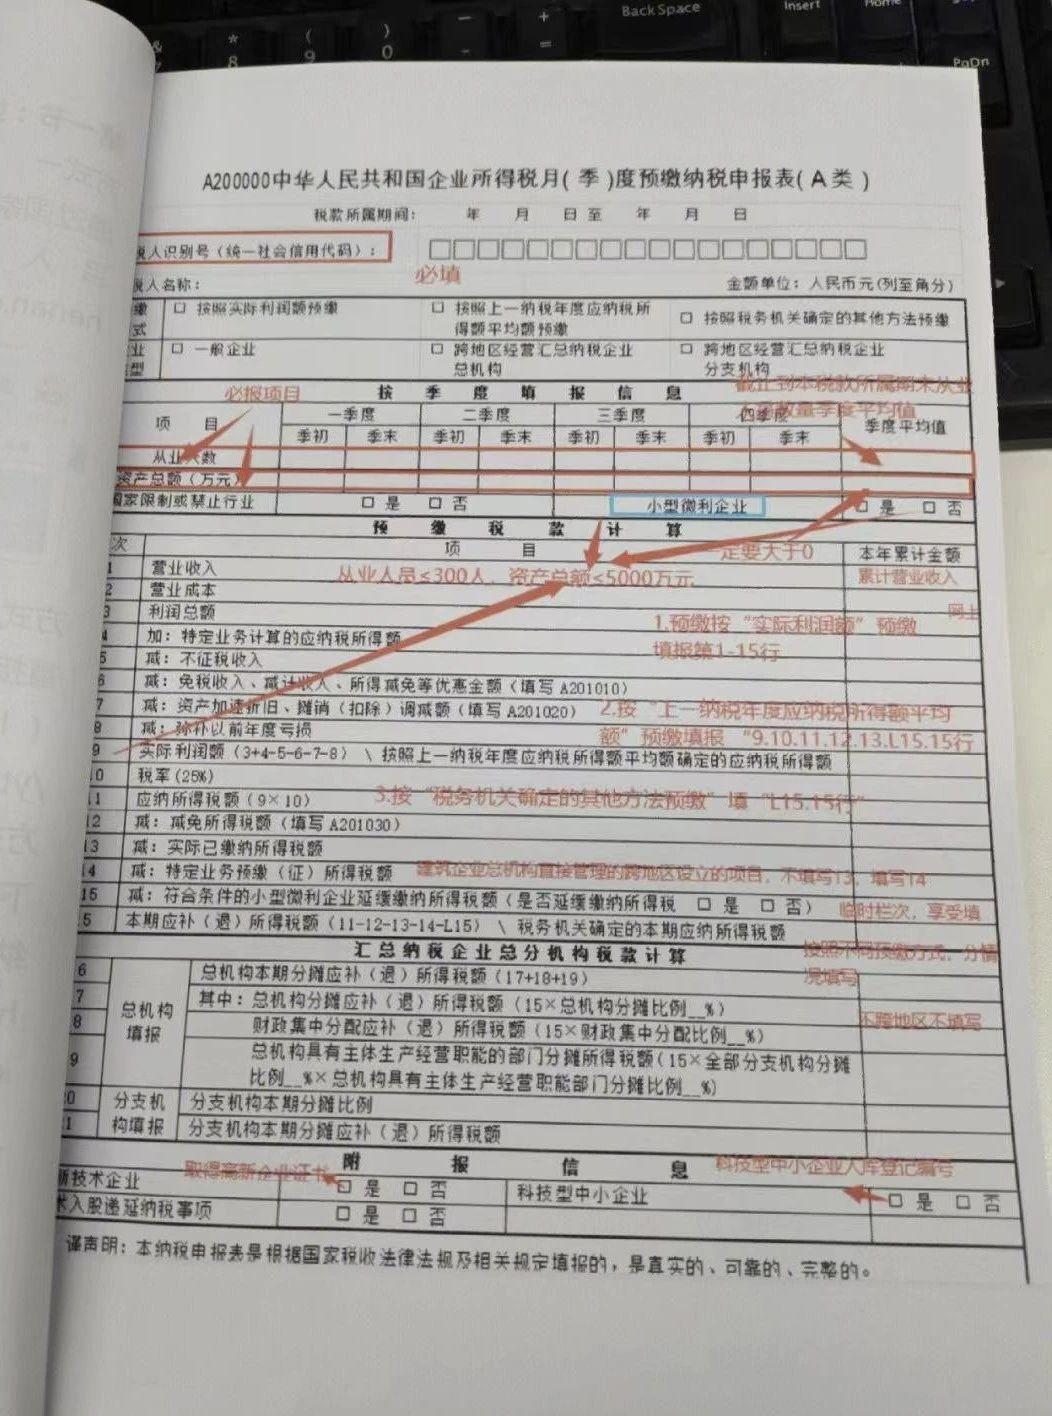 Back Space
Insert
Home
PgDn
*
8
(
9
)
0
-
+
=
A200000中华人民共和国企业所得税月(季)度预缴纳税申报表(A类)
税款所属期间： 年 月 日至 年 月 日
税人识别号(统一社会信用代码)：□□□□□□□□□□□□□□□□□□
必填
税人名称： 金额单位：人民币元(列至角分)
缴 □ 按照实际利润额预缴 □ 按照上一纳税年度应纳税所 □ 按照税务机关确定的其他方法预缴
式 得额平均额预缴
业 □ 一般企业 □ 跨地区经营汇总纳税企业 □ 跨地区经营汇总纳税企业
型 总机构 分支机构
必报项目 按 季 度 填 报 信 息 截止到本税款所属期末从业
数量季度平均值
项 目 一季度 二季度 三季度 四季度 季度平均值
季初 季末 季初 季末 季初 季末 季初 季末
从业人数
资产总额(万元)
国家限制或禁止行业 □ 是 □ 否 小型微利企业 □ 是 □ 否
预 缴 税 款 计 算
次 项 目 一定要大于0 本年累计金额
1 营业收入 从业人员≤300人，资产总额≤5000万元 累计营业收入
2 营业成本
3 利润总额 网上
1.预缴按“实际利润额”预缴
4 加：特定业务计算的应纳税所得额
填报第1-15行
5 减：不征税收入
6 减：免税收入、减计收入、所得减免等优惠金额(填写A201010)
7 减：资产加速折旧、摊销(扣除)调减额(填写A201020) 2.按“上一纳税年度应纳税所得额平均
8 减：弥补以前年度亏损 额”预缴填报“9.10.11.12.13.L15.15行
9 实际利润额(3+4-5-6-7-8) \ 按照上一纳税年度应纳税所得额平均额确定的应纳税所得额
10 税率(25%)
11 应纳所得税额(9×10) 3.按“税务机关确定的其他方法预缴”填“L15.15行”
12 减：减免所得税额(填写A201030)
13 减：实际已缴纳所得税额
14 减：特定业务预缴(征)所得税额 建筑企业总机构直接管理的跨地区设立的项目，不填写13，填写14
15 减：符合条件的小型微利企业延缓缴纳所得税额(是否延缓缴纳所得税 □ 是 □ 否) 临时栏次，享受填
5 本期应补(退)所得税额(11-12-13-14-L15) \ 税务机关确定的本期应纳所得税额
汇总纳税企业总分机构税款计算 按照不同预缴方式，分情
况填写
6 总机构填报 总机构本期分摊应补(退)所得税额(17+18+19)
7 其中：总机构分摊应补(退)所得税额(15×总机构分摊比例__%)
8 财政集中分配应补(退)所得税额(15×财政集中分配比例__%) 不跨地区不填写
9 总机构具有主体生产经营职能的部门分摊所得税额(15×全部分支机构分摊
比例__%×总机构具有主体生产经营职能部门分摊比例__%)
20 分支机构填报 分支机构本期分摊比例
21 分支机构本期分摊应补(退)所得税额
附 报 信 息
取得高新企业证书 科技型中小企业入库登记编号
新技术企业 □ 是 □ 否 科技型中小企业 □ 是 □ 否
术入股递延纳税事项 □ 是 □ 否
谨声明：本纳税申报表是根据国家税收法律法规及相关规定填报的，是真实的、可靠的、完整的。